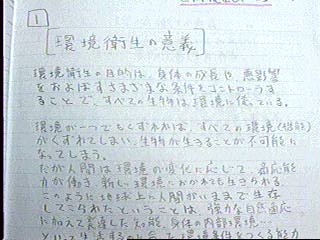 1
[環境衛生の意義]
環境衛生の目的は、身体の成長や悪影響
をおよぼすさまざまな条件をコントロールす
ることで、すべての生物は環境に依っている。
環境が一つでもくずれれば、すべての環境(機能)
がくずれてしまい、生物が生きることが不可能に
なってしまう。
だが人間は環境の変化に応じて、適応能
力が働き、新しい環境におかれても生きられる。
このように地球上に人間がいままで生存
してこられたということは、強力な自然適応
に加えて発達した知能、身体の内部環境…